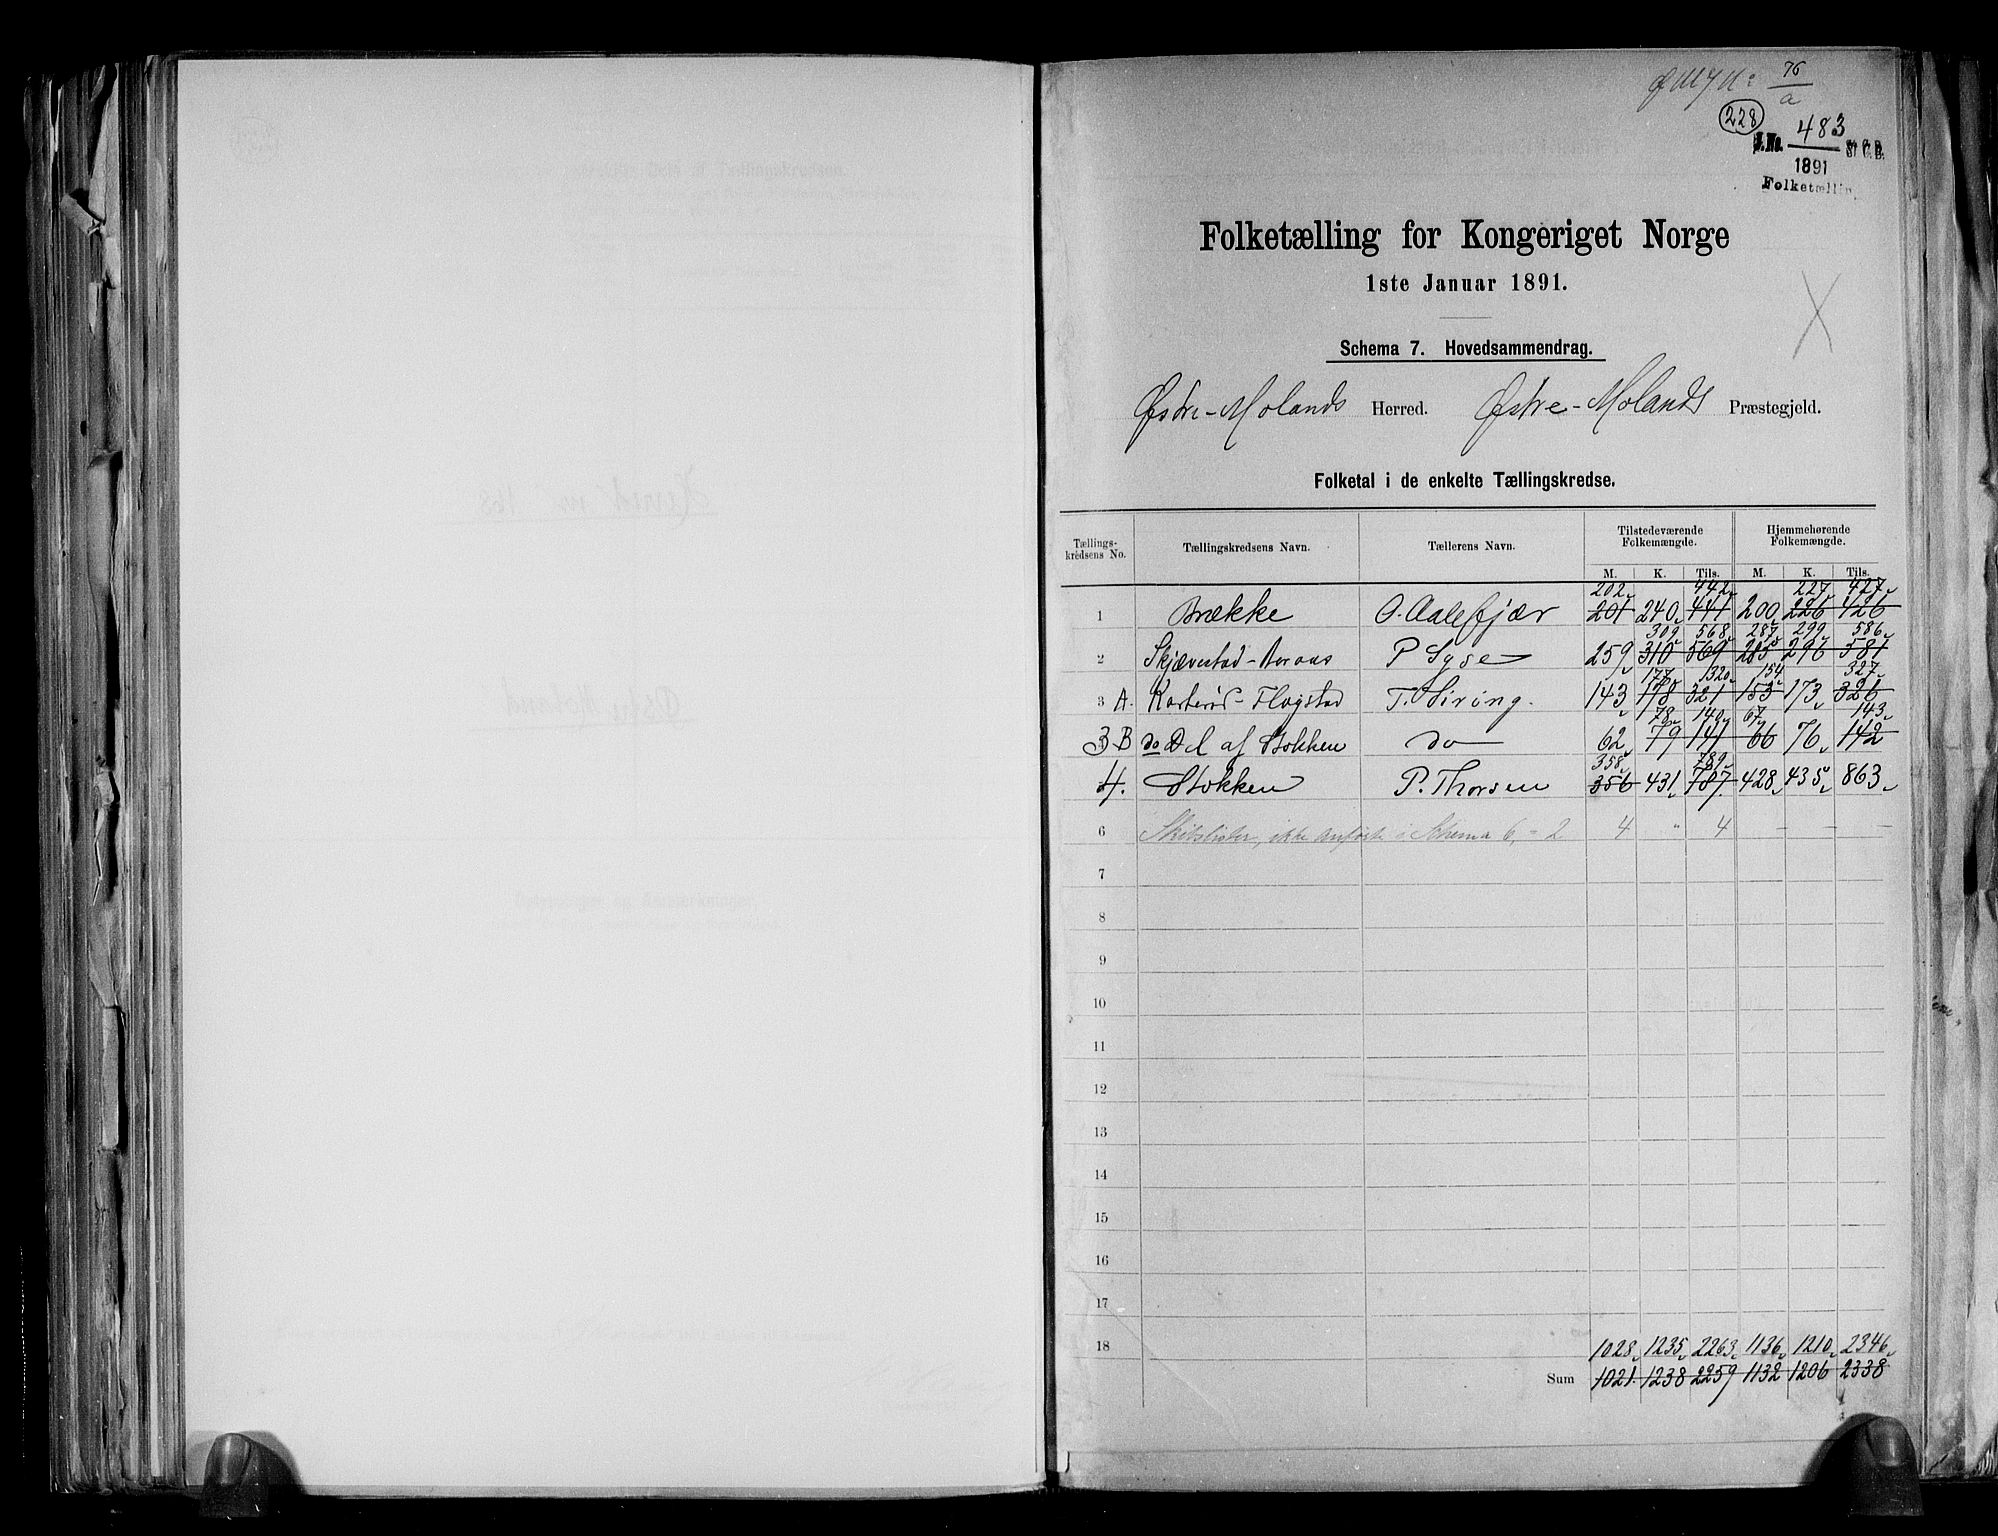 76
a
228
J. No. 483 St. C. B.
1891
Folketællin
Folketælling for Kongeriget Norge
1ste Januar 1891.
Schema 7. Hovedsammendrag.
Østre-Molands Herred. Østre-Molands Præstegjeld.
Folketal i de enkelte Tællingskredse.
Tællings-kredsens No. Tællingskredsens Navn. Tællerens Navn. Tilstedeværende Folkemængde. Hjemmehørende Folkemængde.
M. K. Tils. M. K. Tils.
202 442 227 427
1 Brække O. Aalefjær 201 240 441 200 226 426
309 568 287 299 586
2 P Syse 259 310 569 285 296 581
177 320 154 327
3 A. Flagstad T. Siring. 143 178 321 153 173 326
78 140 67 143
3 B do Del af Stokken do 62 79 141 66 76 142
358 789
4. Stokken P. Thorsen 356 431 787 428 435 863
6 Skibslister, ikke anførte i Schema 6, = 2 4 " 4 – – –
7
8
9
10
11
12
13
14
15
16
17
18 1028 1235 2263 1136 1210 2346
Sum 1021 1238 2259 1132 1206 2338